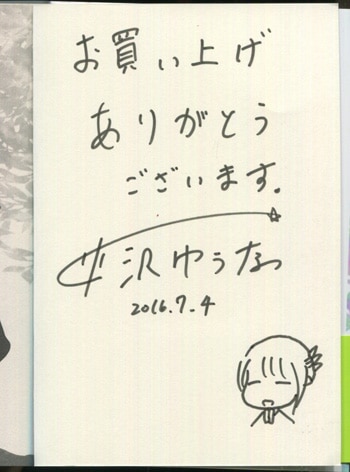 お買い上げ
ありがとう
ございます。
沢ゆうな
2016.7.4